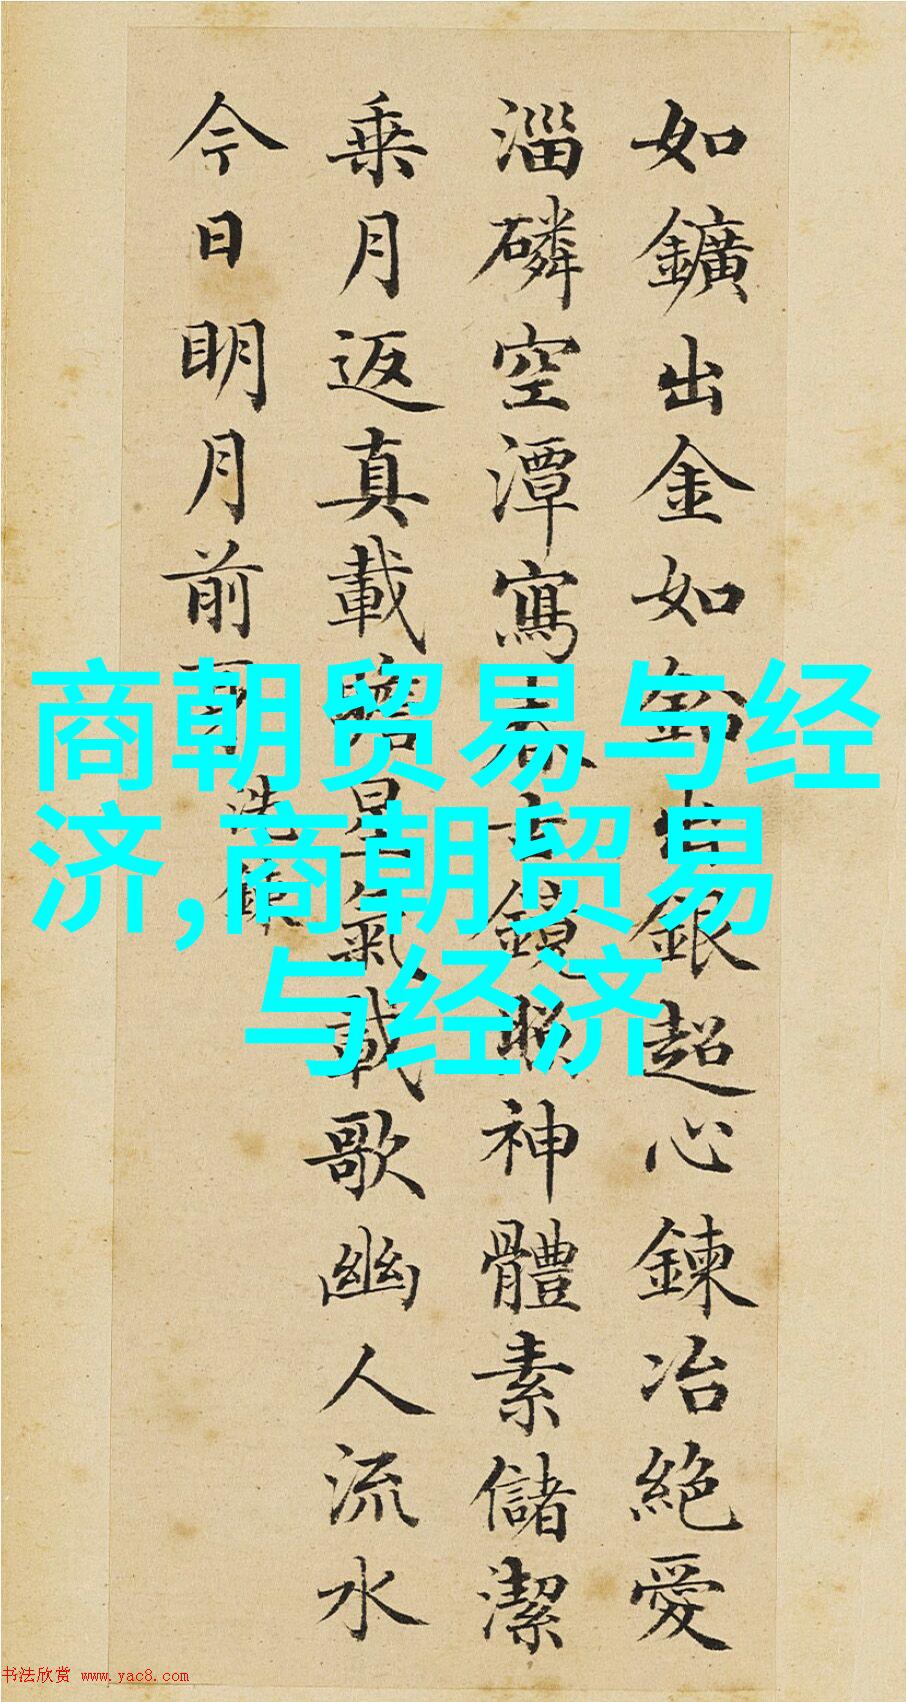 如鑛出金如鉛出銀超心鍊冶絕愛
淄磷空潭寫春古鏡照神體素儲潔
乗月返真載瞻星氣載歌幽人流水
今日明月前身洗鍊
商朝贸易与经
济,商朝贸易
与经济
书法欣赏 www.yac8.com